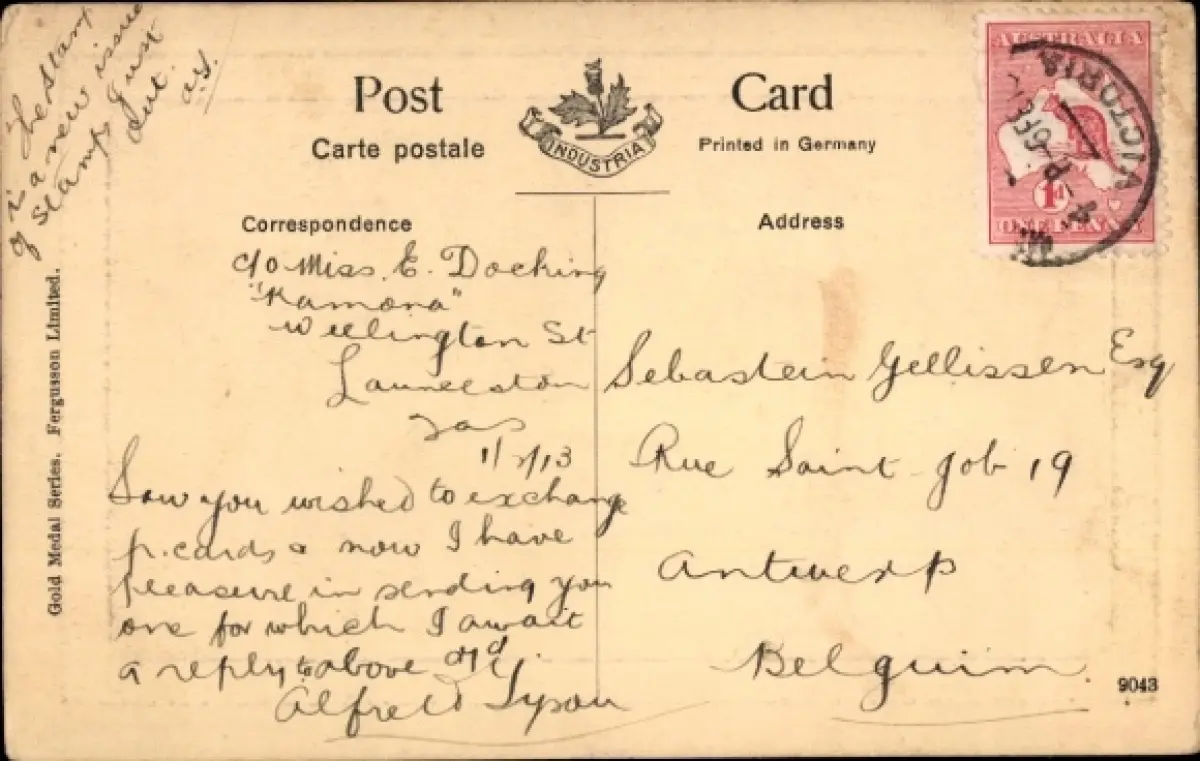 The stamp
is a new issue
of stamps just
out.
a.y.
Post Card
Carte postale
INDUSTRIA
Printed in Germany
Correspondence
Address
AUSTRALIA
1d
ONE PENNY
VICTORIA
c/o Miss. E. Docking
"Kamona"
Wellington St
Launceston
Tas
1/2/13
Saw you wished to exchange
p. cards & now I have
pleasure in sending you
one for which I await
a reply to above
Alfred Tyson
Sebastein Gellissen Esq
Rue Saint Job 19
Antwerp
Belguim.
9043
Gold Medal Series. Fergusson Limited.